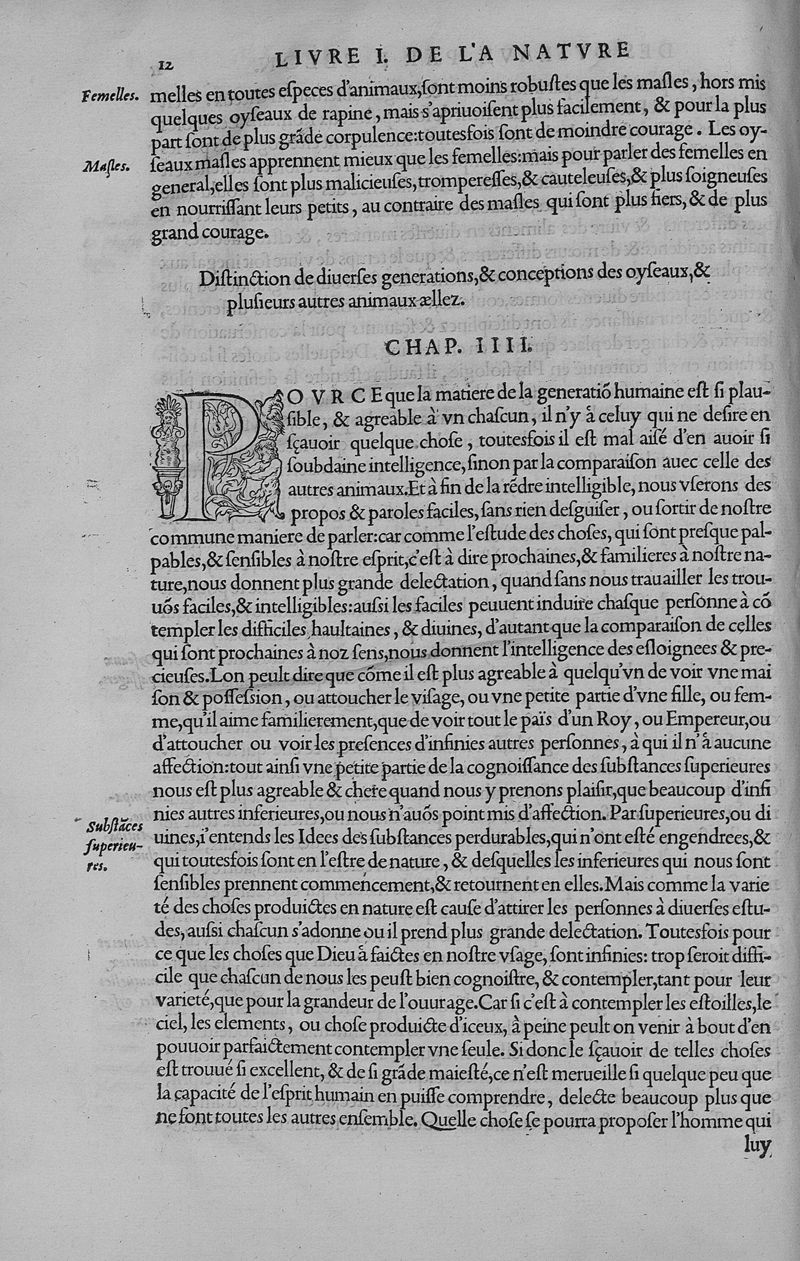 12 LIVRE I. DE L'A NATVRE
Femelles. melles en toutes eſpeces d'animaux, ſont moins robuſtes que les maſles, hors mis
quelques oyſeaux de rapine, mais s'apriuoiſent plus facilement, & pour la plus
part ſont de plus grãde corpulence: toutesfois ſont de moindre courage. Les oy-
Maſles. ſeaux maſles apprennent mieux que les femelles: mais pour parler des femelles en
general, elles ſont plus malicieuſes, trompereſſes, & cauteleuſes, & plus ſoigneuſes
en nourriſſant leurs petits, au contraire des maſles qui ſont plus fiers, & de plus
grand courage.
Diſtinction de diuerſes generations, & conceptions des oyſeaux, &
pluſieurs autres animaux ællez.
CHAP. IIII.
POVRCE que la matiere de la generatiõ humaine eſt ſi plau-
ſible, & agreable à vn chaſcun, il n'y à celuy qui ne deſire en
ſçauoir quelque choſe, toutesfois il eſt mal aiſé d'en auoir ſi
ſoubdaine intelligence, ſinon par la comparaiſon auec celle des
autres animaux. Et à fin de la rẽdre intelligible, nous vſerons des
propos & paroles faciles, ſans rien deſguiſer, ou ſortir de noſtre
commune maniere de parler: car comme l'eſtude des choſes, qui ſont preſque pal-
pables, & ſenſibles à noſtre eſprit, c'eſt à dire prochaines, & familieres à noſtre na-
ture, nous donnent plus grande delectation, quand ſans nous trauailler les trou-
uõs faciles, & intelligibles: auſsi les faciles peuuent induire chaſque perſonne à cõ
templer les difficiles, haultaines, & diuines, d'autant que la comparaiſon de celles
qui ſont prochaines à noz ſens, nous donnent l'intelligence des eſloignees & pre-
cieuſes. Lon peult dire que cõme il eſt plus agreable à quelqu'vn de voir vne mai
ſon & poſſeſsion, ou attoucher le viſage, ou vne petite partie d'vne fille, ou fem-
me, qu'il aime familierement, que de voir tout le païs d'un Roy, ou Empereur, ou
d'attoucher ou voir les preſences d'infinies autres perſonnes, à qui il n'à aucune
affection: tout ainſi vne petite partie de la cognoiſſance des ſubſtances ſuperieures
nous eſt plus agreable & chere quand nous y prenons plaiſir, que beaucoup d'infi
nies autres inferieures, ou nous n'auõs point mis d'affection. Par ſuperieures, ou di
Subſtãces ſuperieu-res. uines, i'entends les Idees des ſubſtances perdurables, qui n'ont eſté engendrees, &
qui toutesfois ſont en l'eſtre de nature, & deſquelles les inferieures qui nous ſont
ſenſibles prennent commencement, & retournent en elles. Mais comme la varie
té des choſes produictes en nature eſt cauſe d'attirer les perſonnes à diuerſes eſtu-
des, auſsi chaſcun s'adonne ou il prend plus grande delectation. Toutesfois pour
ce que les choſes que Dieu à faictes en noſtre vſage, ſont infinies: trop ſeroit diffi-
cile que chaſcun de nous les peuſt bien cognoiſtre, & contempler, tant pour leur
varieté, que pour la grandeur de l'ouurage. Car ſi c'eſt à contempler les eſtoilles, le
ciel, les elements, ou choſe produicte d'iceux, à peine peult on venir à bout d'en
pouuoir parfaictement contempler vne ſeule. Si donc le ſçauoir de telles choſes
eſt trouué ſi excellent, & de ſi grãde maieſté, ce n'eſt merueille ſi quelque peu que
la capacité de l'eſprit humain en puiſſe comprendre, delecte beaucoup plus que
ne font toutes les autres enſemble. Quelle choſe ſe pourra propoſer l'homme qui
luy